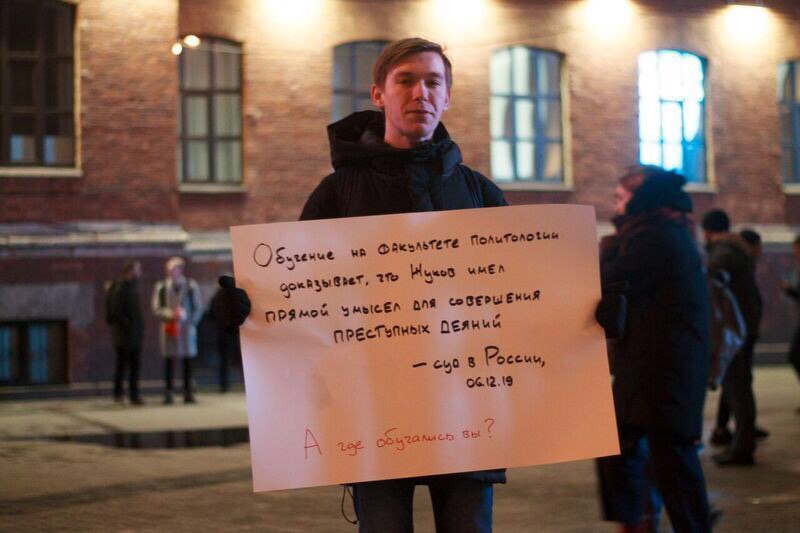 Обучение на факультете политологии
доказывает, что Жуков имел
прямой умысел для совершения
преступных деяний
— суд в России,
06.12.19
А где обучались вы?